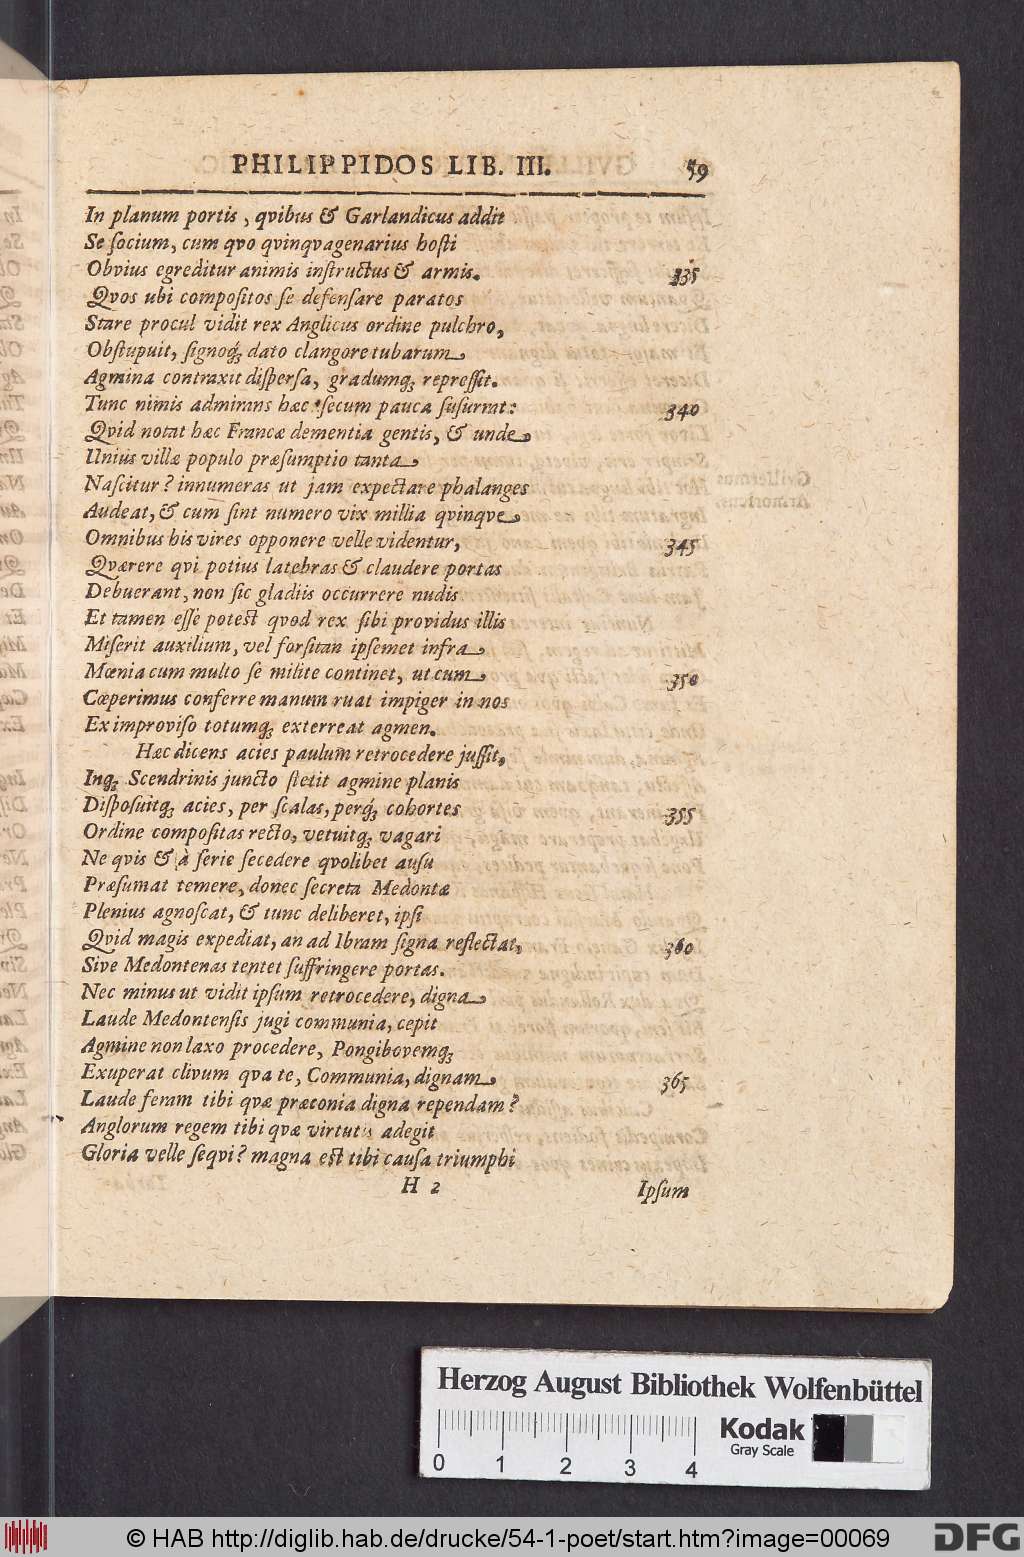 PHILIPPIDOS LIB. III. 59
In planum portis, qvibus & Garlandicus addit
Se ſocium, cum qvo qvinqvagenarius hoſti
Obvius egreditur animis inſtructus & armis. 335
Qvos ubi compoſitos ſe defenſare paratos
Stare procul vidit rex Anglicus ordine pulchro,
Obſtupuit, ſignoq́ꝫ dato clangore tubarum
Agmina contraxit diſperſa, gradumqꝫ repreſſit.
Tunc nimis admirans hæc ſecum pauca ſuſurrat: 340
Qvid notat hæc Francæ dementia gentis, & unde
Unius villæ populo præſumptio tanta
Naſcitur? innumeras ut jam expectare phalanges
Audeat, & cum ſint numero vix millia qvinqve
Omnibus his vires opponere velle videntur, 345
Qværere qvi potius latebras & claudere portas
Debuerant, non ſic gladiis occurrere nudis
Et tamen eſſe poteſt qvod rex ſibi providus illis
Miſerit auxilium, vel forſitan ipſemet infra
Mœnia cum multo ſe milite continet, ut cum 350
Cœperimus conferre manum ruat impiger in nos
Ex improviſo totumqꝫ exterreat agmen.
Hæc dicens acies paulum retrocedere juſſit,
Inqꝫ Scendrinis juncto ſtetit agmine planis
Diſpoſuitqꝫ acies, per ſcalas, perq́ꝫ cohortes 355
Ordine compoſitas recto, vetuitqꝫ vagari
Ne qvis & à ſerie ſecedere qvolibet auſu
Præſumat temere, donec ſecreta Medontæ
Plenius agnoſcat, & tunc deliberet, ipſi
Qvid magis expediat, an ad Ibram ſigna reflectat, 360
Sive Medontenas tentet ſuffringere portas.
Nec minus ut vidit ipſum retrocedere, digna
Laude Medontenſis jugi communia, cepit
Agmine non laxo procedere, Pongibovemqꝫ
Exuperat clivum qva te, Communia, dignam 365
Laude feram tibi qvæ præconia digna rependam?
Anglorum regem tibi qvæ virtutis adegit
Gloria velle ſeqvi? magna eſt tibi cauſa triumphi
H 2 Ipſum
Herzog August Bibliothek Wolfenbüttel
Kodak
Gray Scale
0 1 2 3 4
© HAB http://diglib.hab.de/drucke/54-1-poet/start.htm?image=00069
DFG